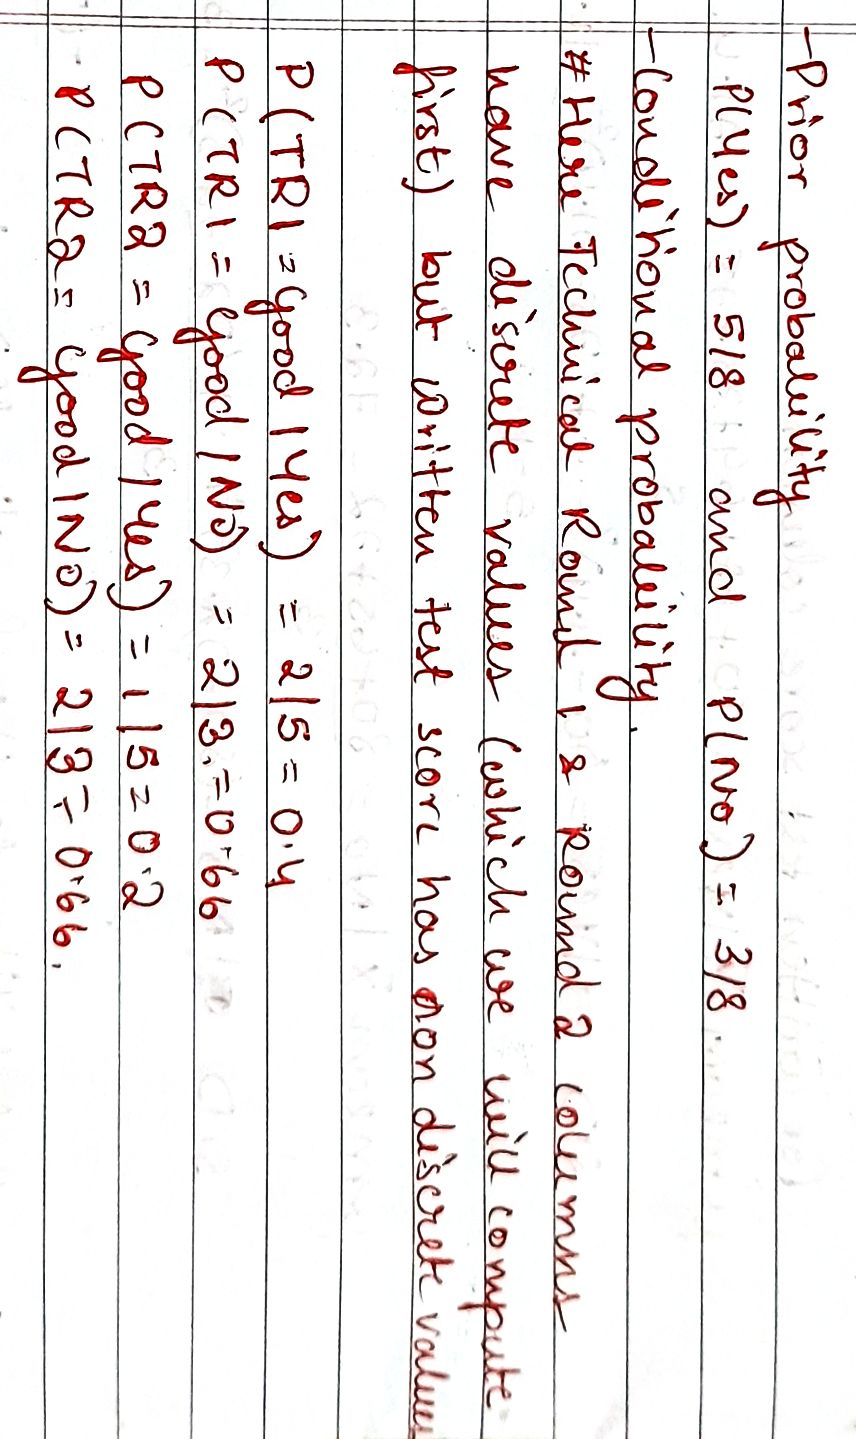 -Prior probability
P(Yes) = 5/8 and P(No) = 3/8
-Conditional probability.
# Here Technical Round 1 & Round 2 columns
have discrete values (which we will compute
first) but written test score has non discrete values
P(TR1 = Good | Yes) = 2/5 = 0.4
P(TR1 = Good | No) = 2/3. = 0.66
P(TR2 = Good | Yes) = 1/5 = 0.2
P(TR2 = Good | No) = 2/3 = 0.66.